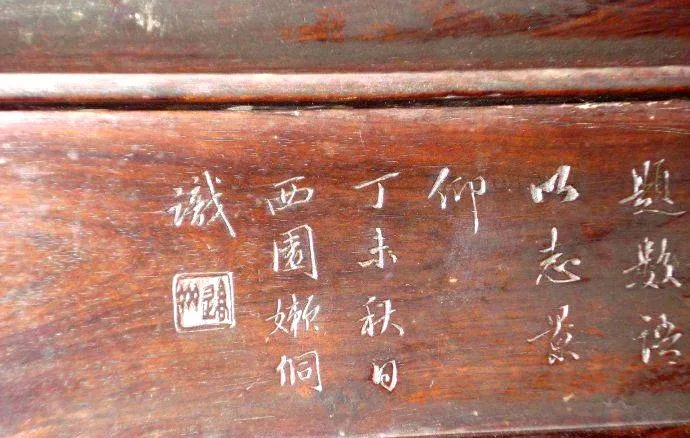 題数語
以志景
仰
丁未秋日
西園嬾侗
識